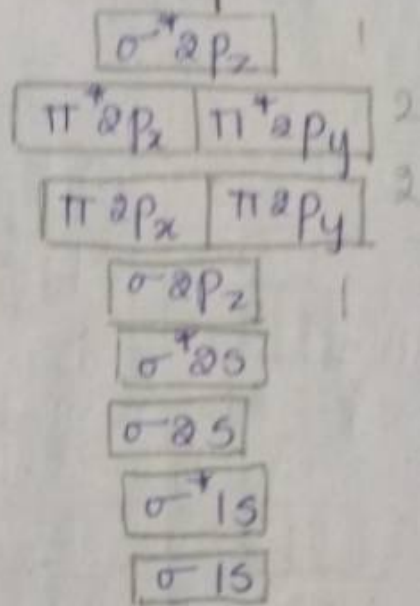 σ*2pz 1
π*2px π*2py 2
π2px π2py 2
σ2pz 1
σ*2s
σ2s
σ*1s
σ1s